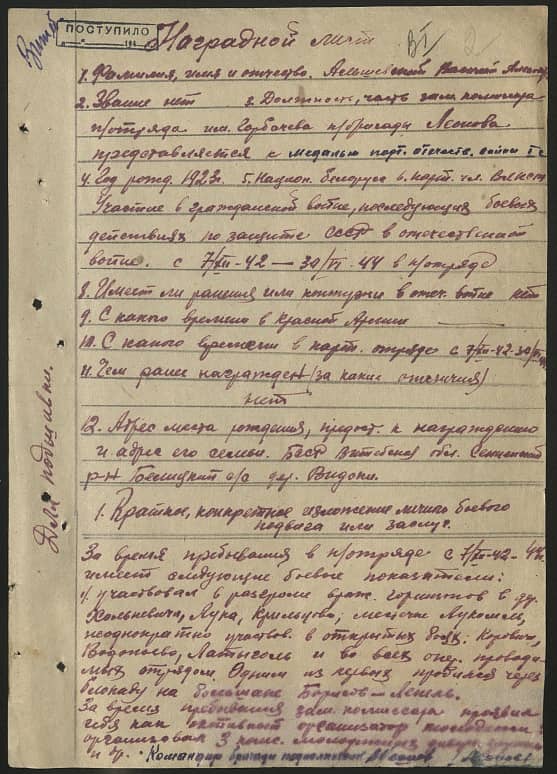 ПОСТУПИЛО
Наградной лист
1. Фамилия, имя и отчество. Василий
2. Звание нет 3. Должность, часть зам. комиссара
п/отряда им. Горбачева п/бригады Леонова
представляется к медалью парт. отечеств. войны I ст
4. Год рожд. 1923г. 5. Национ. белорус 6. парт. чл. ВЛКСМ
Участие в гражданской войне, последующих боевых
действиях по защите СССР в отечественной
войне. с 7/XII-42 — 30/VI-44 в п/отряде
8. Имеет ли ранения или контузии в отеч. войне нет
9. С какого времени в Красной Армии —
10. С какого времени в парт. отряде с 7/XII-42-30/VI
11. Чем ранее награжден (за какие отличия)
нет
12. Адрес места рождения, предст. к награждению
и адрес его семьи. БССР Витебская обл. Сенненский
р-н с/с дер.
1. Краткое, конкретное изложение личного боевого
подвига или заслуг.
За время пребывания в п/отряде с 7/XII-42-44г.
имеет следующие боевые показатели:
1/ участвовал в разгроме враж. гарнизонов в дд.
Хольневичи, Лука, Крильцово, местечке Лукомль,
неоднократно участвов. в открытых боях:
Водопьево, и во всех опер. проводи-
мых отрядом. Одним из первых пробился через
блокаду на большаке Борисов — Лепель.
За время пребывания зам. комиссара проявил
себя как активный организатор молодежи
организовал 3 комс. молодежных
и др. Командир бригады подполковник Леонов
Для подшивки.